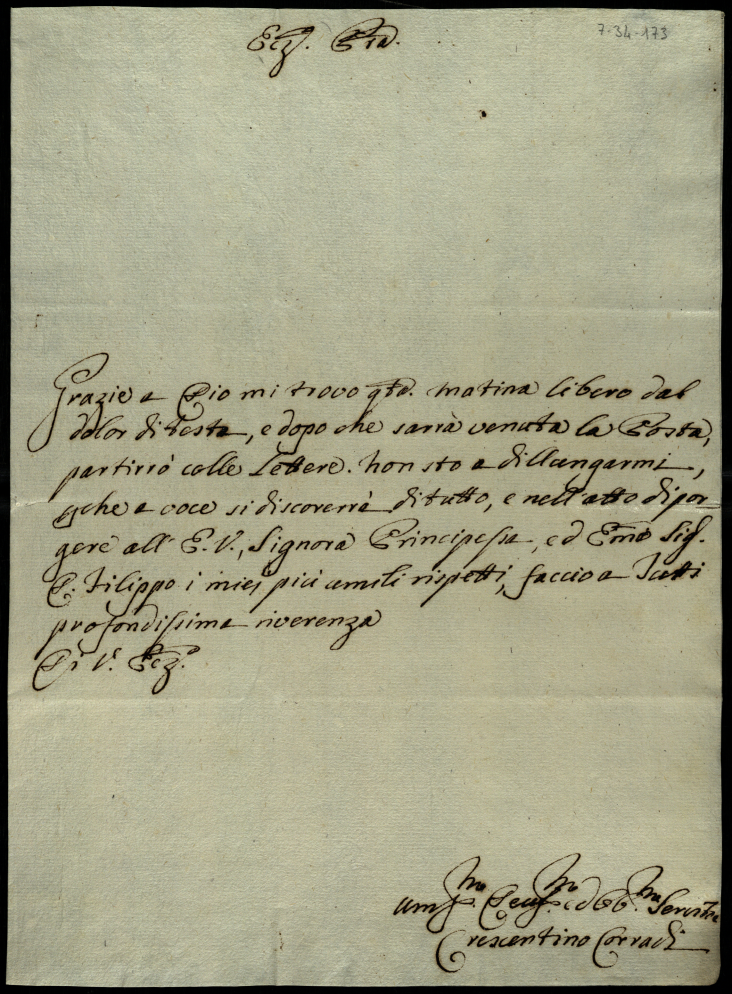 7-34-173
Ecz.ª Pῖa.
Grazie a Dio mi trovo qtã. matina libero dal
dolor di testa, e dopo che sarrà venuta la Posta,
partirrò colle Lettere. Non sto a dillungarmi,
p̱che a voce si discorerrà di tutto, e nell'atto di por
gere all'E.V., Signora Principessa, ed Em̃o Sig.
D. Filippo i miei più umili rispetti, faccio a Tutti
profondissima riverenza
Di V.ª Ecz.ª
Crescentino Corradi